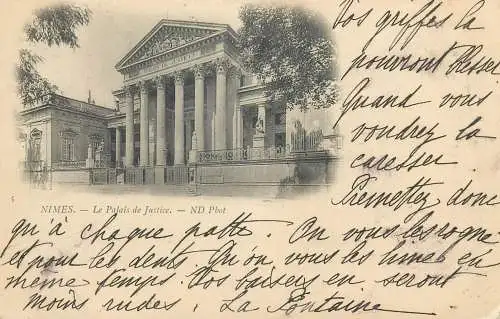 Vos griffes la
pourront blesser
Quand vous
voudrez la
caresser
Permettez donc
NIMES. - Le Palais de Justice. - ND Phot
qu'à chaque patte. On vous les rogne
et pour les dents. Qu'on vous les lime en
même temps. Vos baisers en seront
moins rudes. La Fontaine